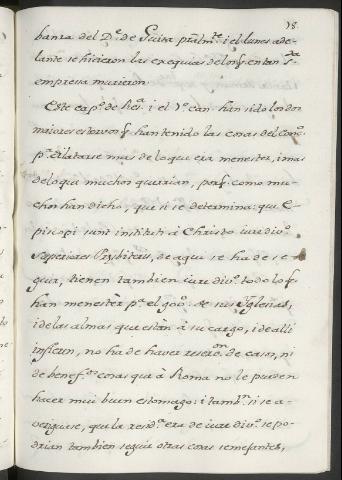 18.
banza del D.e de Guisa prãlm.te i el lunes ade-
lante se hicieron las exequias de los q̃ en tan S.ta
empresa murieron.
Este cap.o de Res.a i el V.o can. han sido los dos
maiores estorvos q̃ han tenido las cosas del Conc.o
p.a dilatarse mas de lo que era menester, i mas
de lo que muchos querrian, porq̃ como mu-
chos han dicho, que si se determina: que E-
piscopi sunt instituti à Christo iure div.o
Superiores Presbiteris, de aqui se ha de se-
guir, tienen tambien iure div.o todo lo q̃
han menester p.a el gov.o de sus Yglesias,
i de las almas que están à su cargo, i de alli
infieren, no ha de haver reserv.on de casos, ni
de benef.os cosas que à Roma no le pueden
hacer mui buen estomago: i tamb.n si se a-
veriguase, que la resid.a era de iure div.o se po-
drian tambien seguir otras cosas semejantes,